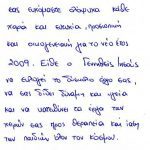 σας ευχόμαστε ολόψυχα κάθε
χαρά και ευτυχία, προσωπική
και οικογενειακή για το νέο έτος
2009. Είθε ο Γεννηθείς Ιησούς
να ευλογεί το δύσκολο έργο σας,
να σας δίδει δύναμη και υγεία
και να κατευθύνει τα έργα των
χειρών σας προς θεραπεία και ίαση
των παιδιών όλου του κόσμου.